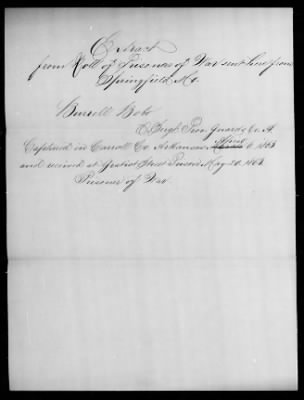 Extract
from Roll of Prisoners of War sent here from
Springfield, Mo.
Burrell Bobo
Captured in Carroll Co. Arkansas April 6, 1863
and received at Gratiot Street Prison May 20. 1863.
Prisoner of War.